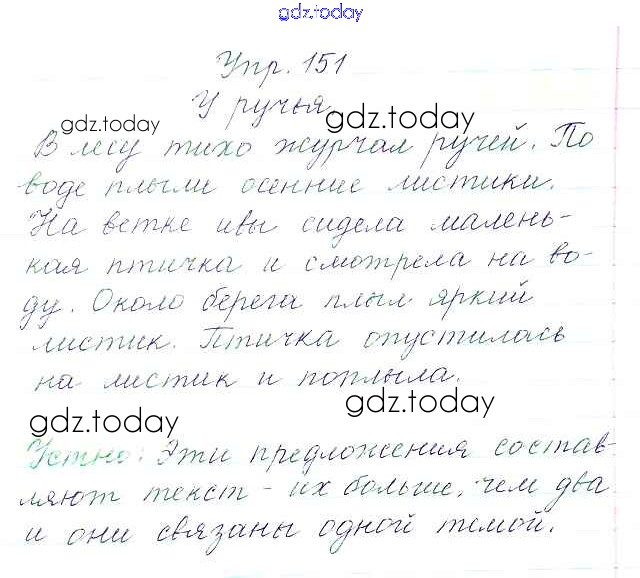 gdz.today
Упр. 151
У ручья
gdz.today
gdz.today
В лесу тихо журчал ручей. По
воде плыли осенние листики.
На ветке ивы сидела малень-
кая птичка и смотрела на во-
ду. Около берега плыл яркий
листик. Птичка опустилась
на листик и поплыла.
gdz.today
gdz.today
Устно: Эти предложения состав-
ляют текст - их больше, чем два
и они связаны одной темой.